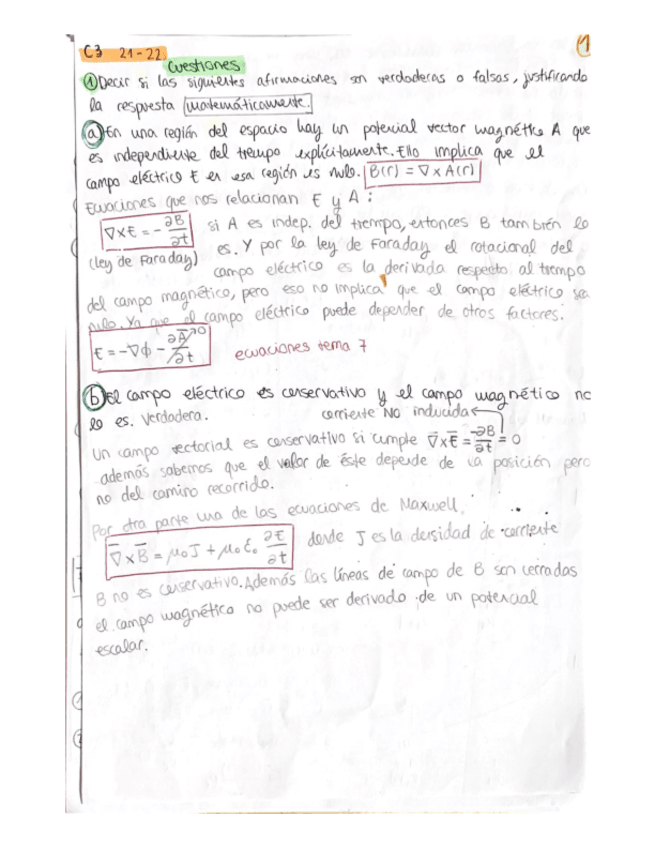 C3 21-22
1
Cuestiones
① Decir si las siguientes afirmaciones son verdaderas o falsas, justificando
la respuesta matemáticamente.
ⓐ En una región del espacio hay un potencial vector magnético A que
es independiente del tiempo explícitamente. Ello implica que el
campo eléctrico E en esa región es nulo. B(r) = ∇ x A(r)
Ecuaciones que nos relacionan E y A :
∇xE = - ∂B/∂t si A es indep. del tiempo, entonces B también lo
(Ley de Faraday) es. Y por la ley de Faraday el rotacional del
campo eléctrico es la derivada respecto al tiempo
del campo magnético, pero eso no implica que el campo eléctrico sea
nulo. Ya que el campo eléctrico puede depender de otros factores:
E = -∇ϕ - ∂A/∂t → 0 ecuaciones tema 7
ⓑ El campo eléctrico es conservativo y el campo magnético no
lo es. Verdadera. corriente NO inducida
Un campo vectorial es conservativo si cumple ∇xE = -∂B/∂t = 0
además sabemos que el valor de éste depende de la posición pero
no del camino recorrido.
Por otra parte una de las ecuaciones de Maxwell.
∇xB = μ₀J + μ₀ε₀ ∂E/∂t donde J es la densidad de corriente
B no es conservativo. Además las líneas de campo de B son cerradas
el campo magnético no puede ser derivado de un potencial
escalar.